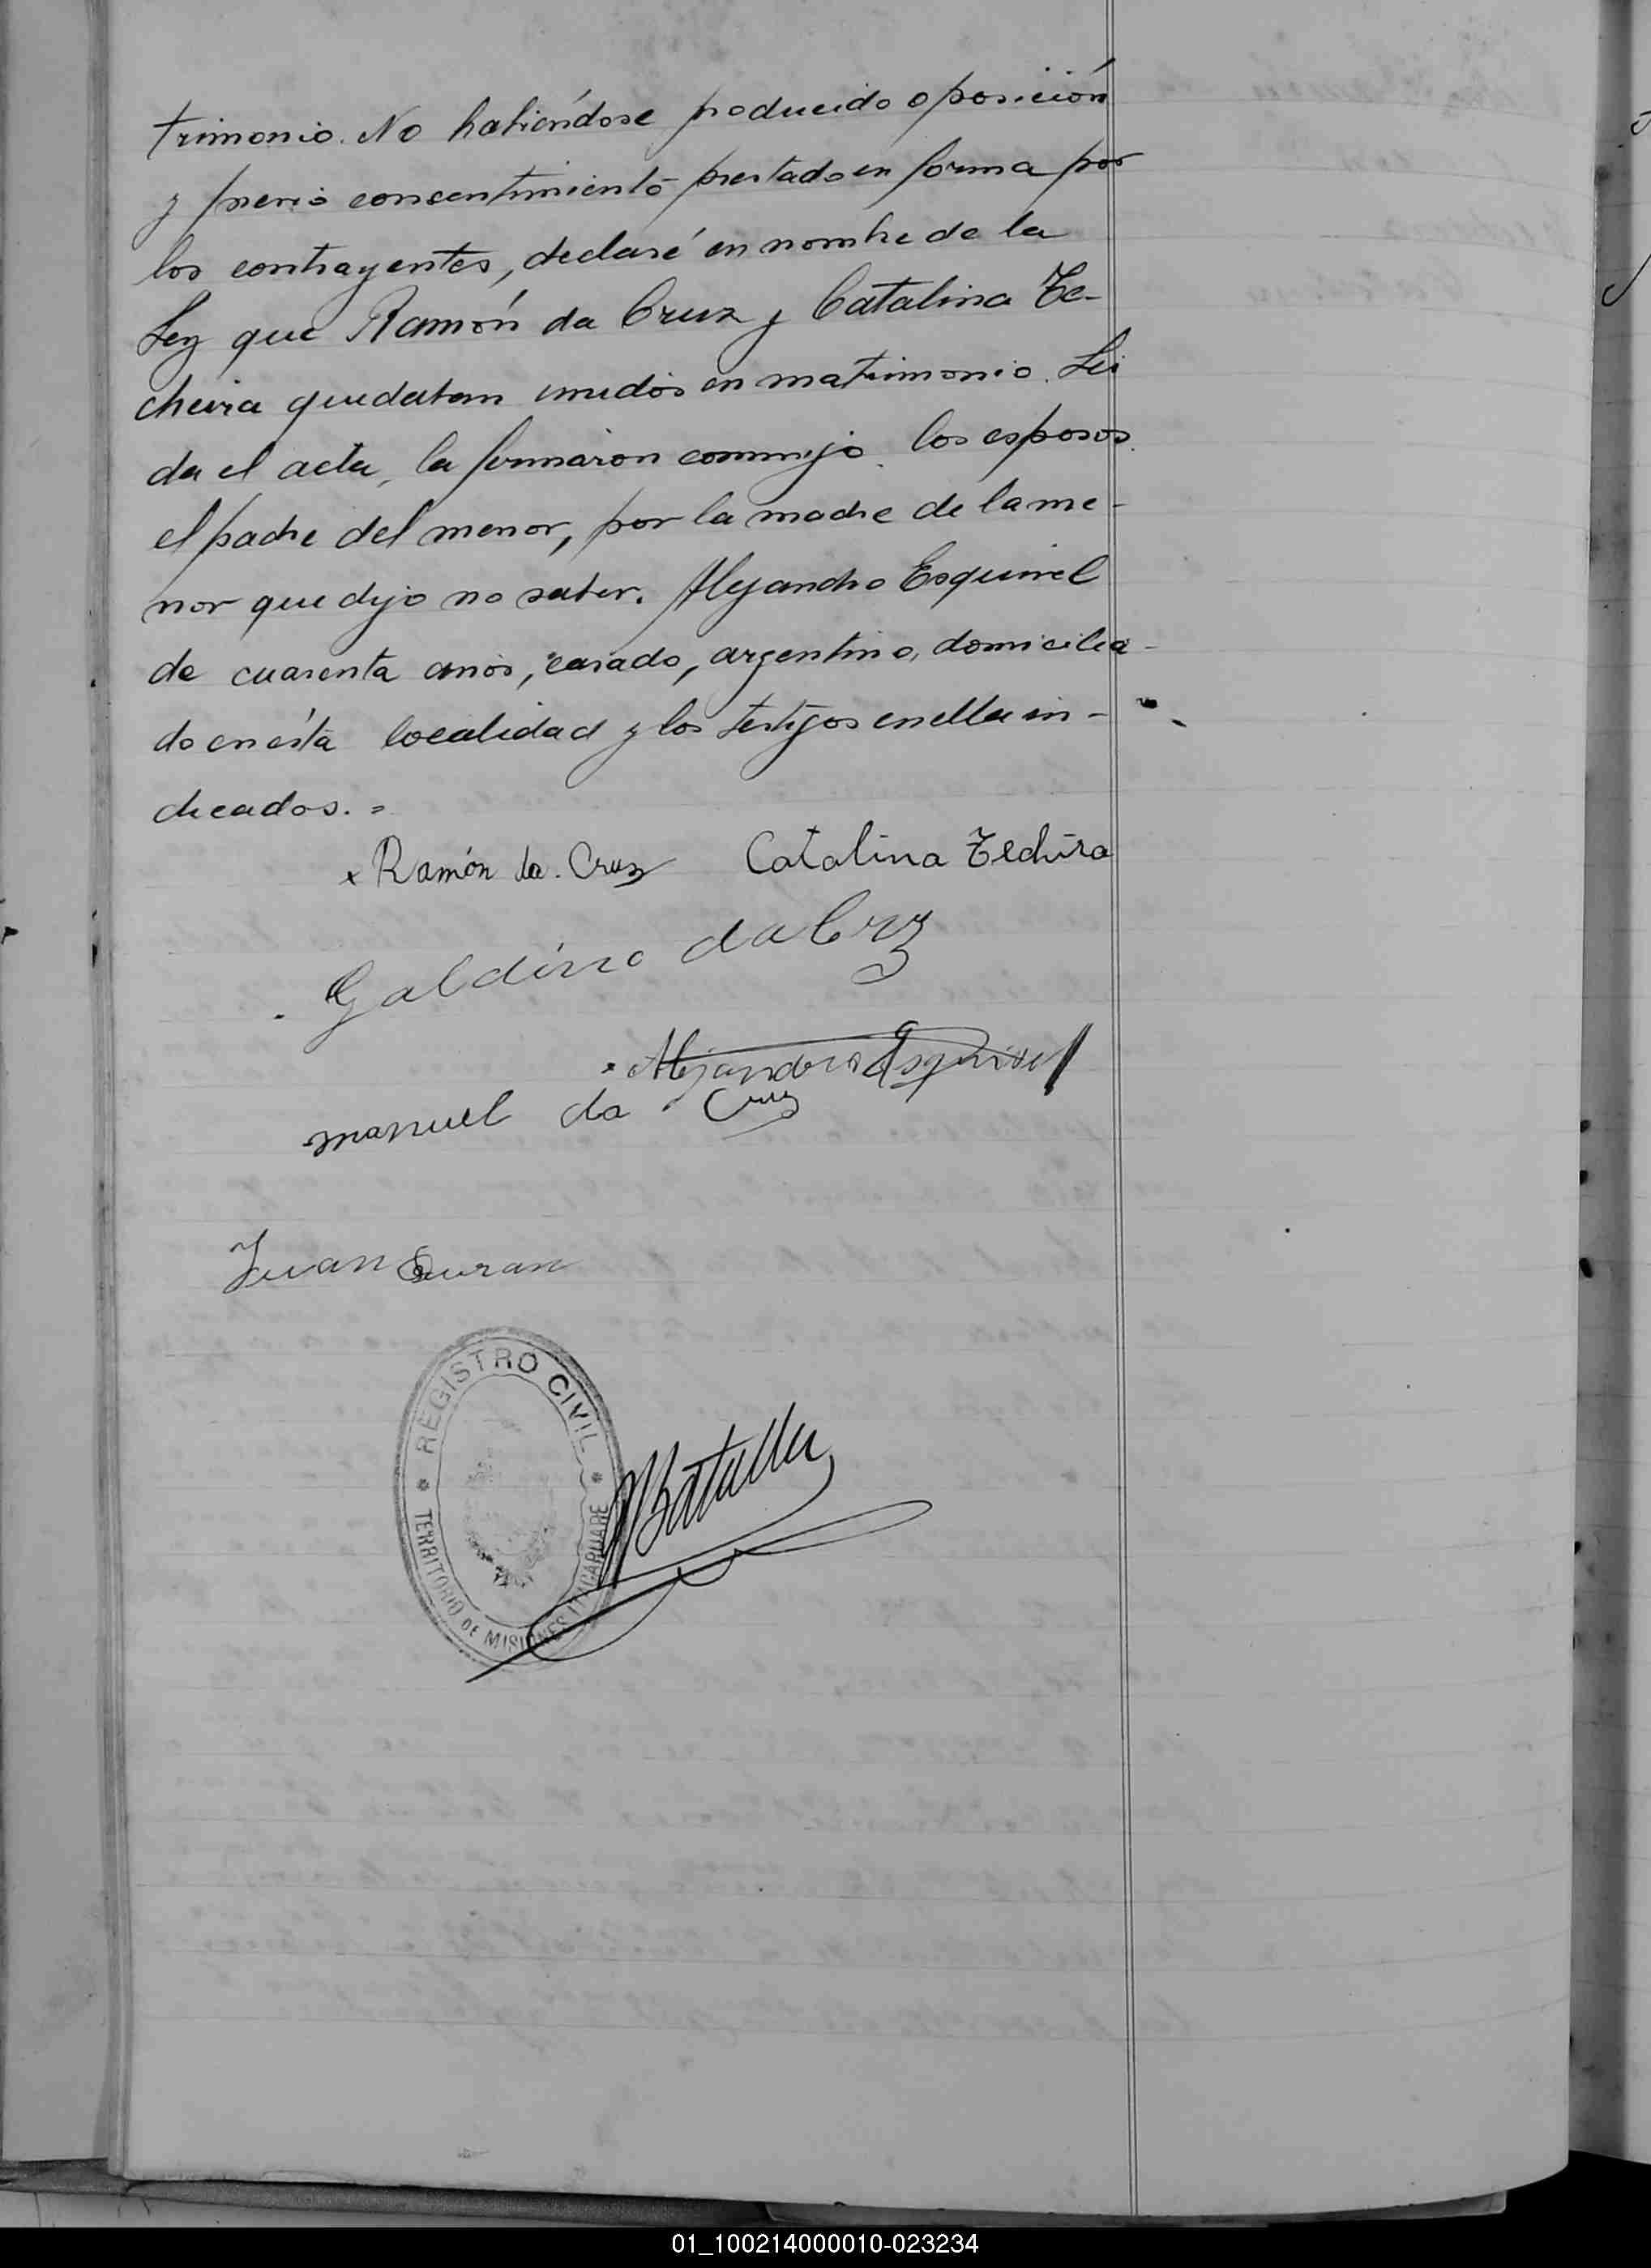 trimonio. No habiéndose producido oposición
y previo consentimiento prestado en forma por
los contrayentes, declaré en nombre de la
Ley que Ramón da Cruz y Catalina Te-
cheira quedaban unidos en matrimonio. Leí
da el acta, la firmaron conmigo los esposos
el padre del menor, por la madre de la me-
nor que dijo no saber. Alejandro Esquivel
de cuarenta años, casado, argentino, domicilia-
do en ésta localidad y los testigos en ella in-
dicados. =
x Ramón da. Cruz Catalina Techira
Galdino da Crz
Alejandro Esquivel
manuel da Cruz
Juan Duran
REGISTRO CIVIL
TERRITORIO DE MISIONES ITACARUARE
Batalla
01_100214000010-023234